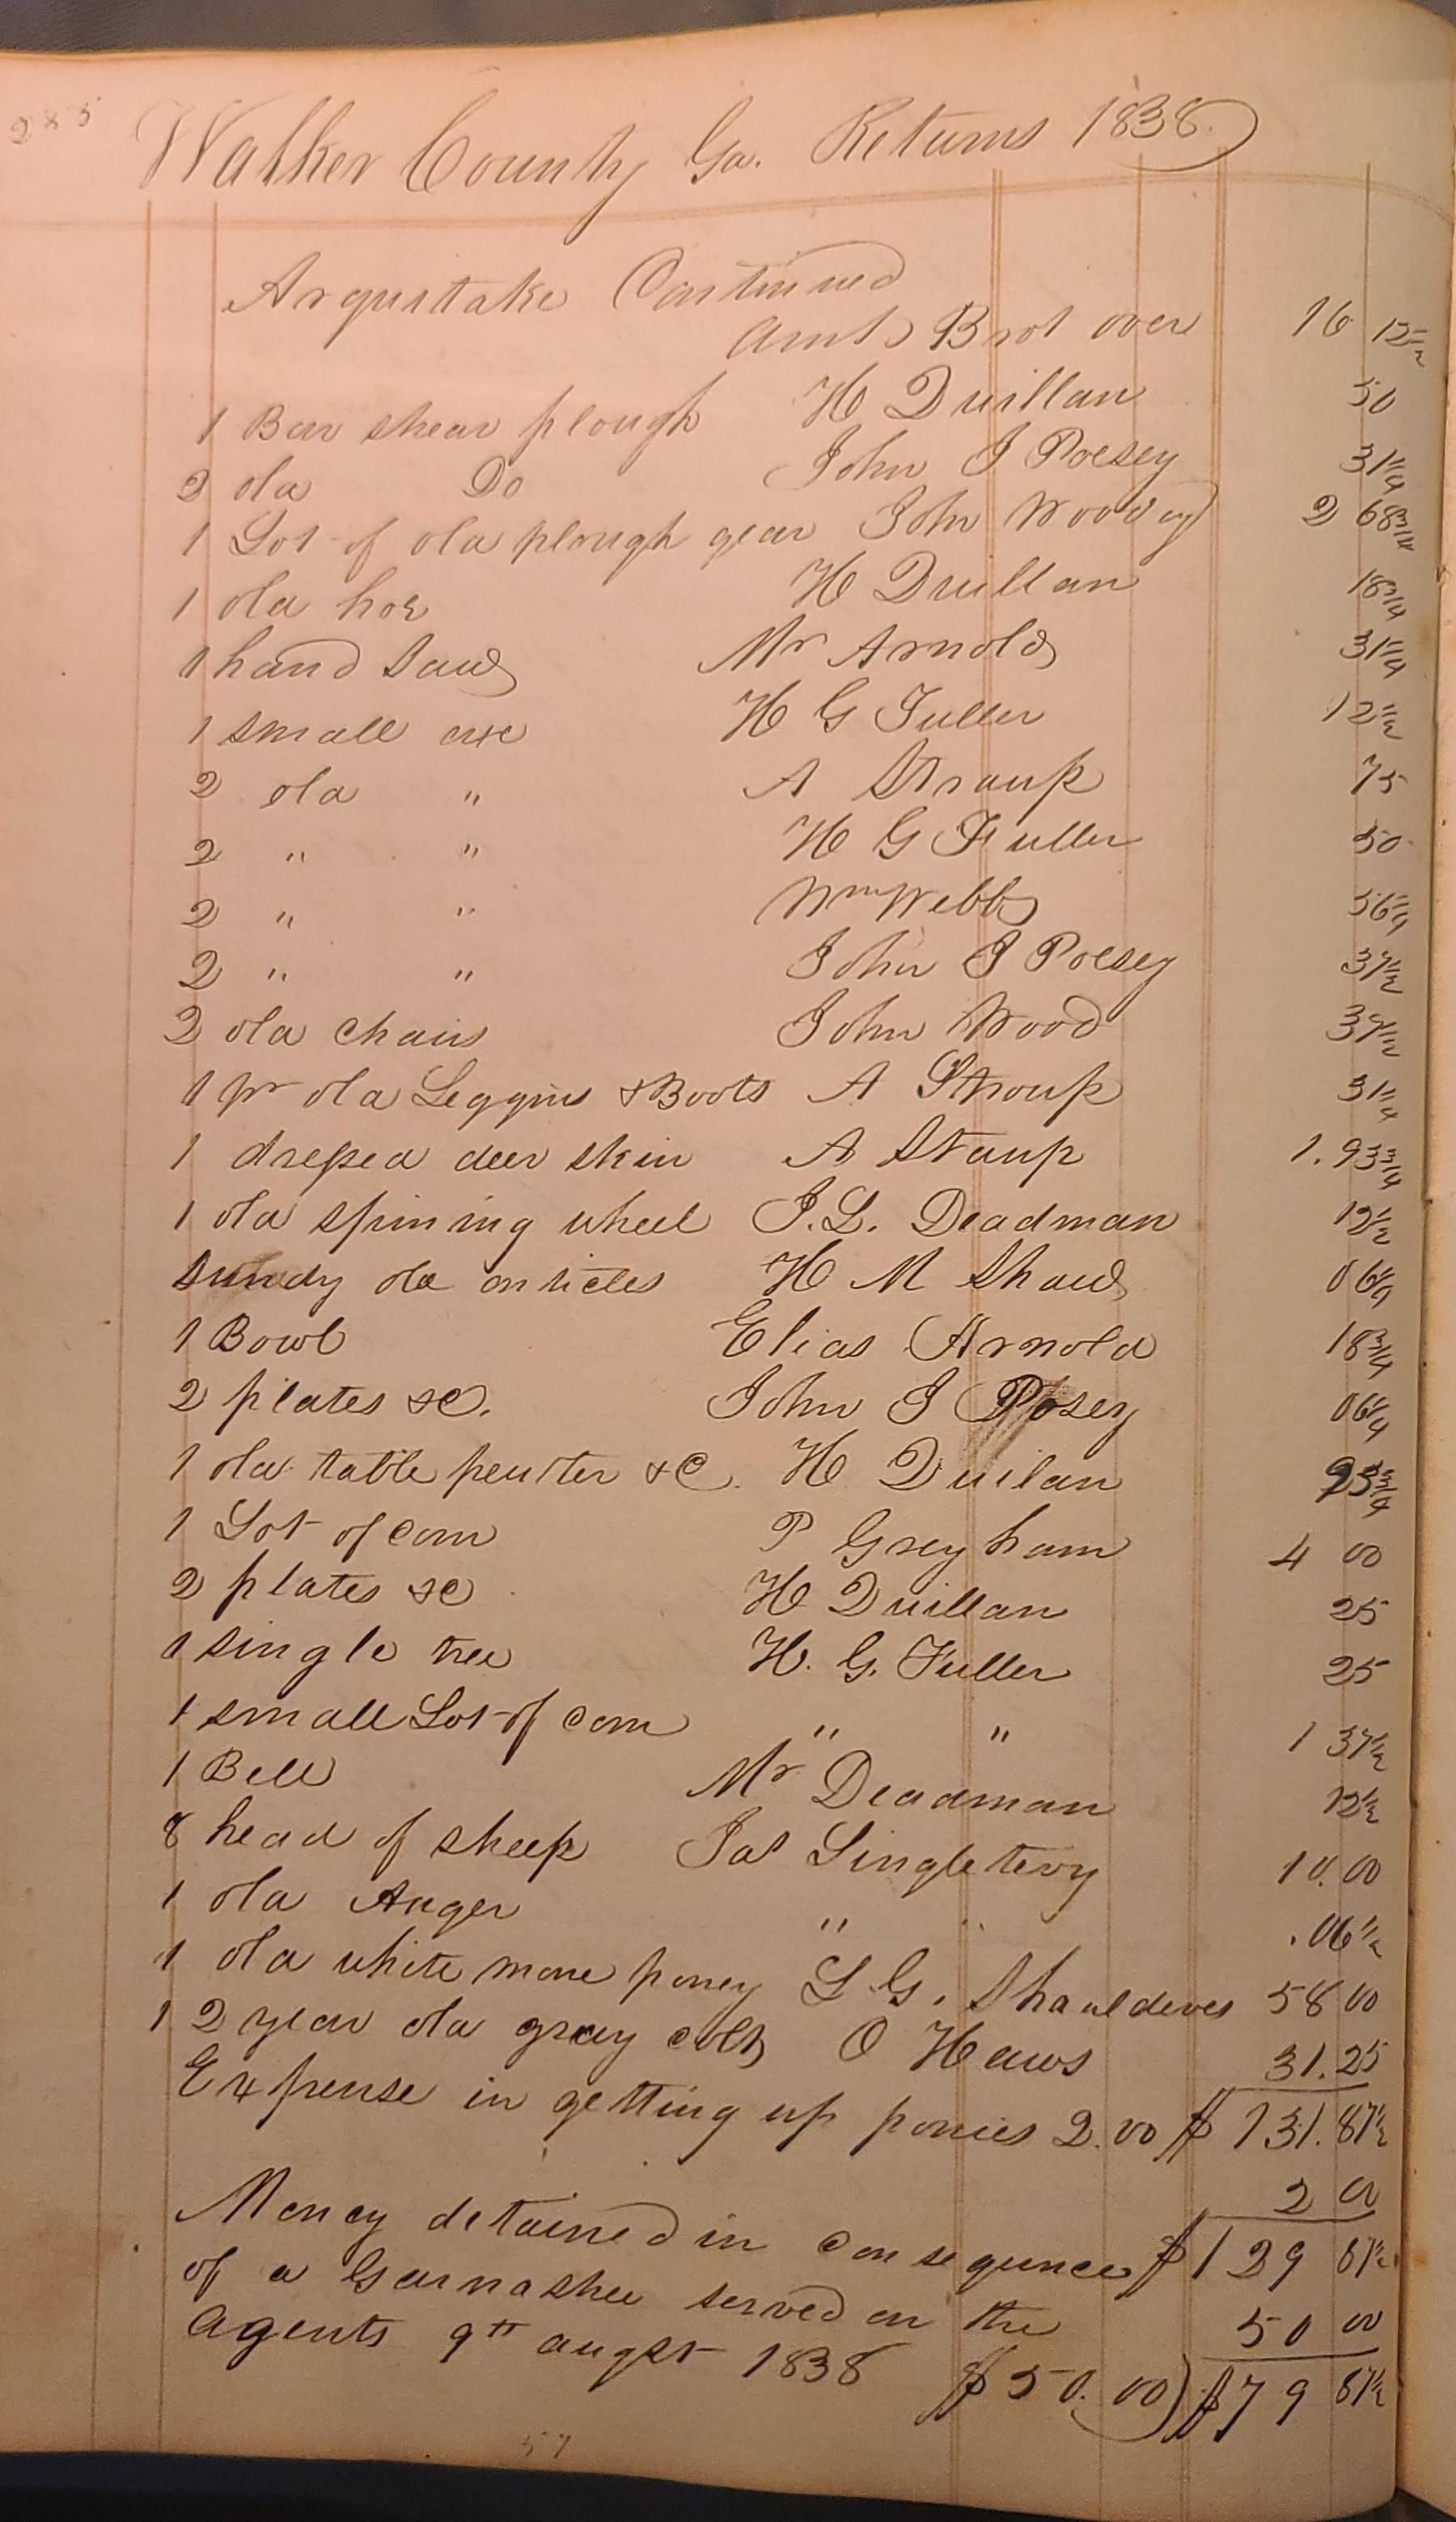 285
Walker County Ga. Returns 1838.
Argustake Continued
Amt Brot over 16 12 1/2
1 Bar shear plough H Duillan 50
2 old Do John J Poesey 31 1/4
1 Lot of old plough gear John Woody 2 68 3/4
1 old hoe H Duillan 18 3/4
1 hand Saw Mr Arnold 31 1/4
1 small axe H G Fuller 12 1/2
2 old " A Stroup 75
2 " " H G Fuller 50
2 " " Wm Webb 56 1/4
2 " " John J Poesey 37 1/2
2 old chairs John Wood 37 1/2
1 pr old Leggins & Boots A Stroup 31 1/4
1 dressed deer skin A Staup 1.93 3/4
1 old spinning wheel J.L. Deadman 12 1/2
Sundy old articles H M Shaw 06 1/4
1 Bowl Elias Arnold 18 3/4
2 plates &C. John J Posey 06 1/4
1 old table pewter &C. H Duilan 93 3/4
1 Lot of corn P Greyham 4 00
2 plates &C H Duillan 25
1 single tree H. G. Fuller 25
1 small Lot of corn " " 1 37 1/2
1 Bell Mr Deadman 12 1/2
8 head of sheep Jas Singletery 10.00
1 old Auger " " .06 1/2
1 old white mare poney L G. Shaulderes 58 00
1 2 year old gray colt O Haws 31.25
Expense in getting up ponies 2.00 $131.87 1/2
2 00
Money detained in consequence $129 87 1/2
of a Garnashee served on the 50 00
Agents 9th augst 1838 $50.00) $79 87 1/2
57